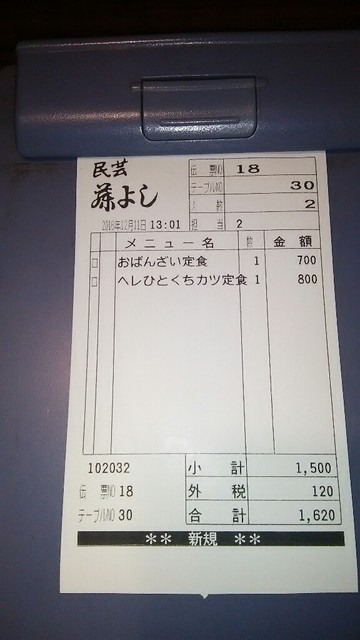 民芸
藤よし
伝票NO 18
テーブルNO 30
人数 2
2016年12月11日 13:01 担当 2
メニュー名 数 金額
おばんざい定食 1 700
ヘレひとくちカツ定食 1 800
102032 小計 1,500
伝票NO 18 外税 120
テーブルNO 30 合計 1,620
** 新規 **